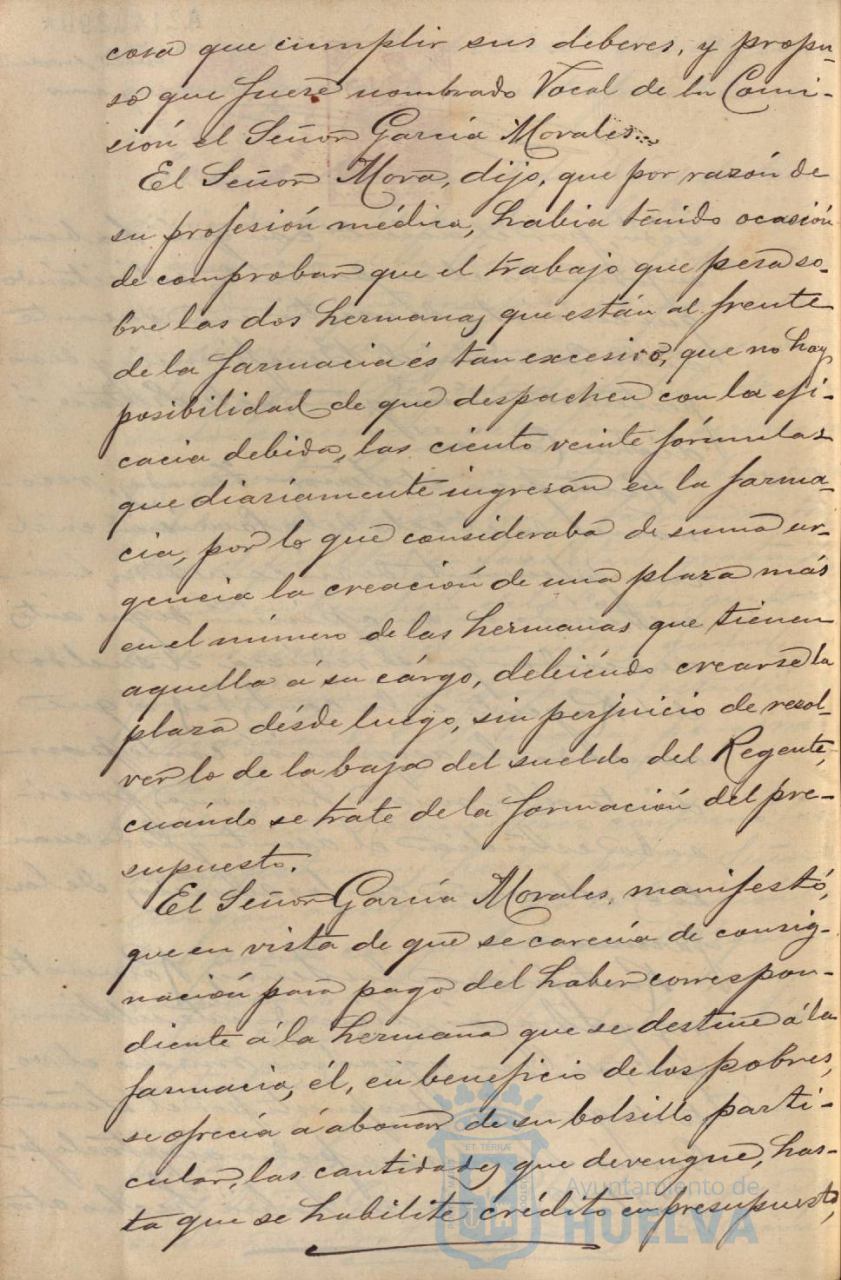 cosa que cumplir sus deberes, y propu-
so que fuese nombrado Vocal de la Comi-
sión el Señor García Morales...
El Señor Mora, dijo, que por razón de
su profesión médica, habia tenido ocasión
de comprobar que el trabajo que pesa so-
bre las dos hermanas que están al frente
de la farmacia és tan excesivo, que no hay
posibilidad de que despachen con la efi-
cacia debida, las ciento veinte fórmulas
que diariamente ingresan en la farma-
cia, por lo que consideraba de suma ur-
gencia la creación de una plaza más
en el número de las hermanas que tienen
aquella á su cárgo, debiéndo crearse la
plaza désde luego, sin perjuicio de resol-
ver lo de la baja del sueldo del Regente,
cuándo se trate de la formación del pre-
supuesto.
El Señor García Morales, manifestó,
que en vista de que se carecía de consig-
nación para pago del haber correspon-
diente á la hermana que se destine á la
farmacia, él, en beneficio de los pobres,
se ofrecía á abonar de su bolsillo parti-
cular, las cantidades que devengue, has-
ta que se habilite crédito en presupuesto,
Ayuntamiento de
HUELVA